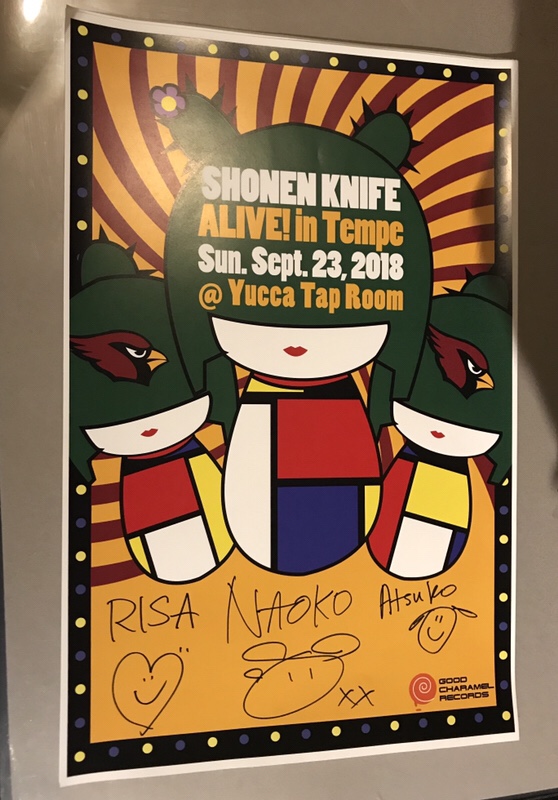 SHONEN KNIFE
ALIVE! in Tempe
Sun. Sept. 23, 2018
@ Yucca Tap Room
RISA NAOKO Atsuko
XX
GOOD
CHARAMEL
RECORDS